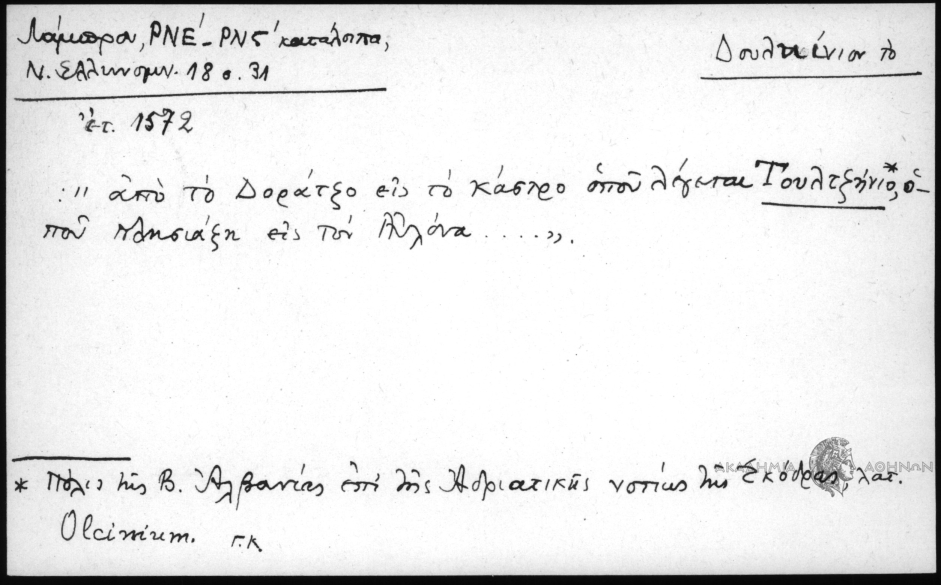 Λάμπρου, ΡΝΕ'-ΡΝϚ' κατάλοιπα,
Ν. Ἑλληνομν. 18 σ. 31
Δουλκίνιον τὸ
ἔτ. 1572
:" ἀπὸ τὸ Δοράτζο εἰς τὸ κάστρο ὁποῦ λέγεται Τουλτζήνιο*, ὁ-
ποῦ πλησιάζη εἰς τὸν Αὐλόνα .....".
* Πόλις τῆς Β. Ἀλβανίας ἐπὶ τῆς Ἀδριατικῆς νοτίως τῆς Σκόδρας, λατ.
Olcinium. Γ.Κ.
ΑΚΑΔΗΜΙΑ ΑΘΗΝΩΝ